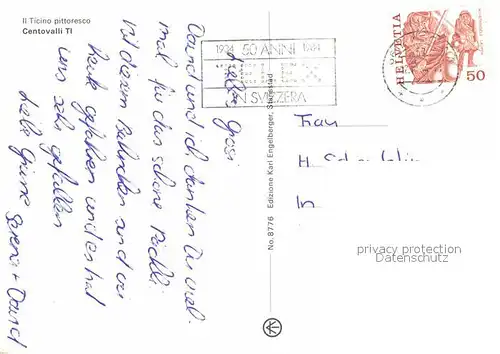 Il Ticino pittoresco
Centovalli TI
1934 50 ANNI 1984
TELEX
IN SVIZZERA
HELVETIA
50
Liebes Grosi
David und ich danken Dir viel-
mal für das schöne Päckli
ist diesem Bähnchen sind wir
Heute gefahren und es hat
uns sehr gefallen
Liebe Grüsse
Serena + David
No. 8776 Edizione Karl Engelberger, Stansstad
Frau
H.
In
privacy protection
Datenschutz